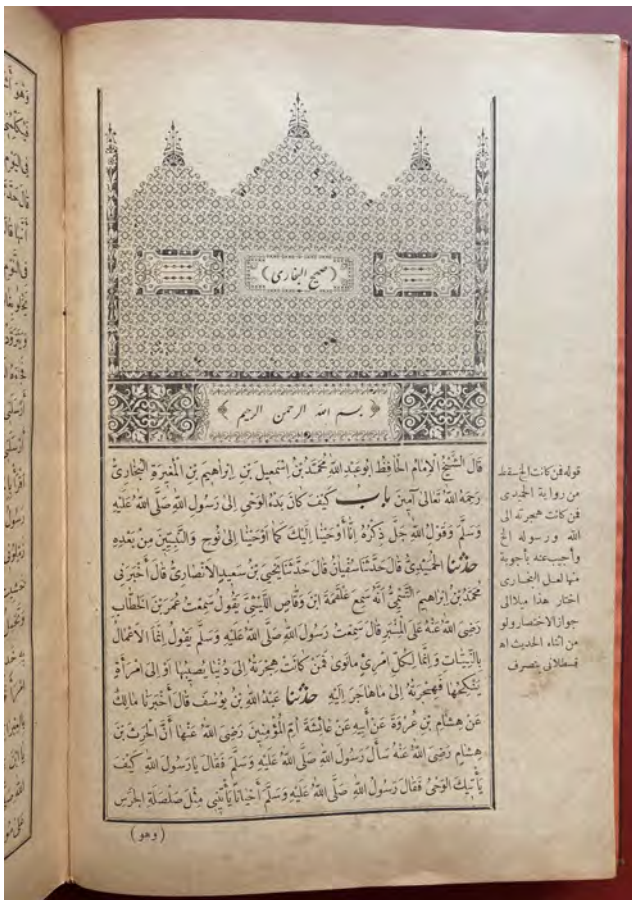 (صحيح البخارى)
بسم الله الرحمن الرحيم
قَالَ الشَّيْخُ الْاِمَامُ الْحَافِظُ اَبُو عَبْدِ اللهِ مُحَمَّدُ بْنُ اِسْمٰعِيلَ بْنِ اِبْرَاهِيمَ بْنِ الْمُغِيرَةِ الْبُخَارِىُّ
رَحِمَهُ اللهُ تَعَالٰى آمِينَ باب كَيْفَ كَانَ بَدْءُ الْوَحْىِ اِلٰى رَسُولِ اللهِ صَلَّى اللهُ عَلَيْهِ
وَسَلَّمَ وَقَوْلُ اللهِ جَلَّ ذِكْرُهُ اِنَّا اَوْحَيْنَا اِلَيْكَ كَمَا اَوْحَيْنَا اِلٰى نُوحٍ وَالنَّبِيِّينَ مِنْ بَعْدِهِ
حدثنا الْحُمَيْدِىُّ قَالَ حَدَّثَنَا سُفْيَانُ قَالَ حَدَّثَنَا يَحْيَى بْنُ سَعِيدٍ الْاَنْصَارِىُّ قَالَ اَخْبَرَنِى
مُحَمَّدُ بْنُ اِبْرَاهِيمَ التَّيْمِىُّ اَنَّهُ سَمِعَ عَلْقَمَةَ ابْنَ وَقَّاصٍ اللَّيْثِىَّ يَقُولُ سَمِعْتُ عُمَرَ بْنَ الْخَطَّابِ
رَضِىَ اللهُ عَنْهُ عَلَى الْمِنْبَرِ قَالَ سَمِعْتُ رَسُولَ اللهِ صَلَّى اللهُ عَلَيْهِ وَسَلَّمَ يَقُولُ اِنَّمَا الْاَعْمَالُ
بِالنِّيَّاتِ وَاِنَّمَا لِكُلِّ امْرِئٍ مَانَوٰى فَمَنْ كَانَتْ هِجْرَتُهُ اِلٰى دُنْيَا يُصِيبُهَا اَوْ اِلَى امْرَأَةٍ
يَنْكِحُهَا فَهِجْرَتُهُ اِلٰى مَاهَاجَرَ اِلَيْهِ حدثنا عَبْدُ اللهِ بْنُ يُوسُفَ قَالَ اَخْبَرَنَا مَالِكٌ
عَنْ هِشَامِ بْنِ عُرْوَةَ عَنْ اَبِيهِ عَنْ عَائِشَةَ اُمِّ الْمُؤْمِنِينَ رَضِىَ اللهُ عَنْهَا اَنَّ الْحٰرِثَ بْنَ
هِشَامٍ رَضِىَ اللهُ عَنْهُ سَأَلَ رَسُولَ اللهِ صَلَّى اللهُ عَلَيْهِ وَسَلَّمَ فَقَالَ يَارَسُولَ اللهِ كَيْفَ
يَأْتِيكَ الْوَحْىُ فَقَالَ رَسُولُ اللهِ صَلَّى اللهُ عَلَيْهِ وَسَلَّمَ اَحْيَانًا يَأْتِينِى مِثْلَ صَلْصَلَةِ الْجَرَسِ
(وهو)
قوله فمن كانت الخ سقط
من رواية الحميدى
فمن كانت هجرته الى
الله ورسوله الخ
وأجيب عنه بأجوبة
منها لعل البخارى
اختار هذا ميلا الى
جواز الاختصار ولو
من اثناء الحديث اه
قسطلانى بتصرف